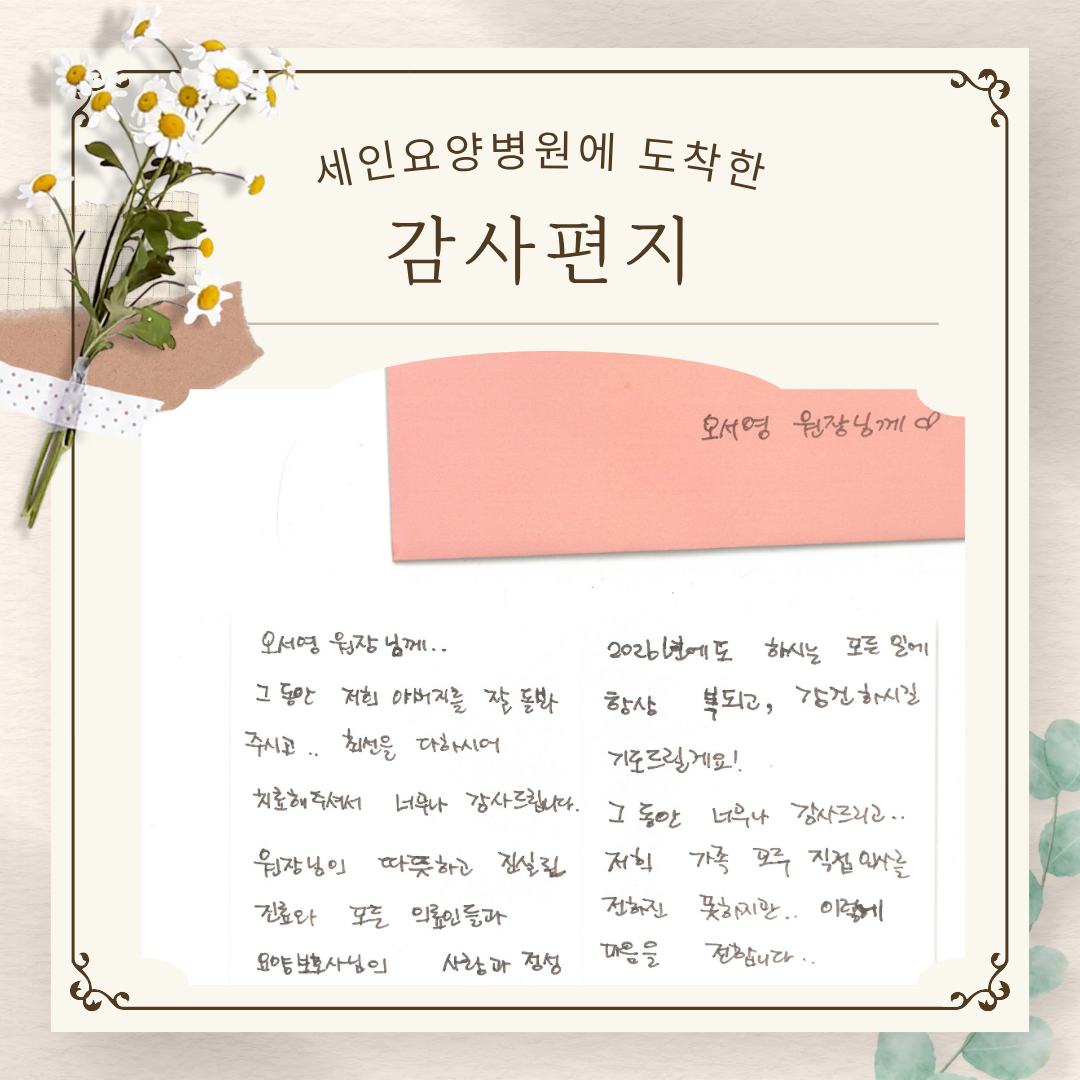 세인요양병원에 도착한
감사편지
오서영 원장님께♡
오서영 원장님께..
그동안 저희 아버지를 잘 돌봐
주시고.. 최선을 다하시어
치료해주셔서 너무나 감사드립니다.
원장님의 따뜻하고 진실된
진료와 모든 의료인들과
요양보호사님의 사랑과 정성
2026년에도 하시는 모든 일에
항상 복되고, 강건하시길
기도드릴게요!
그동안 너무나 감사드리고..
저희 가족 모두 직접 인사를
전하진 못하지만.. 이렇게
마음을 전합니다..